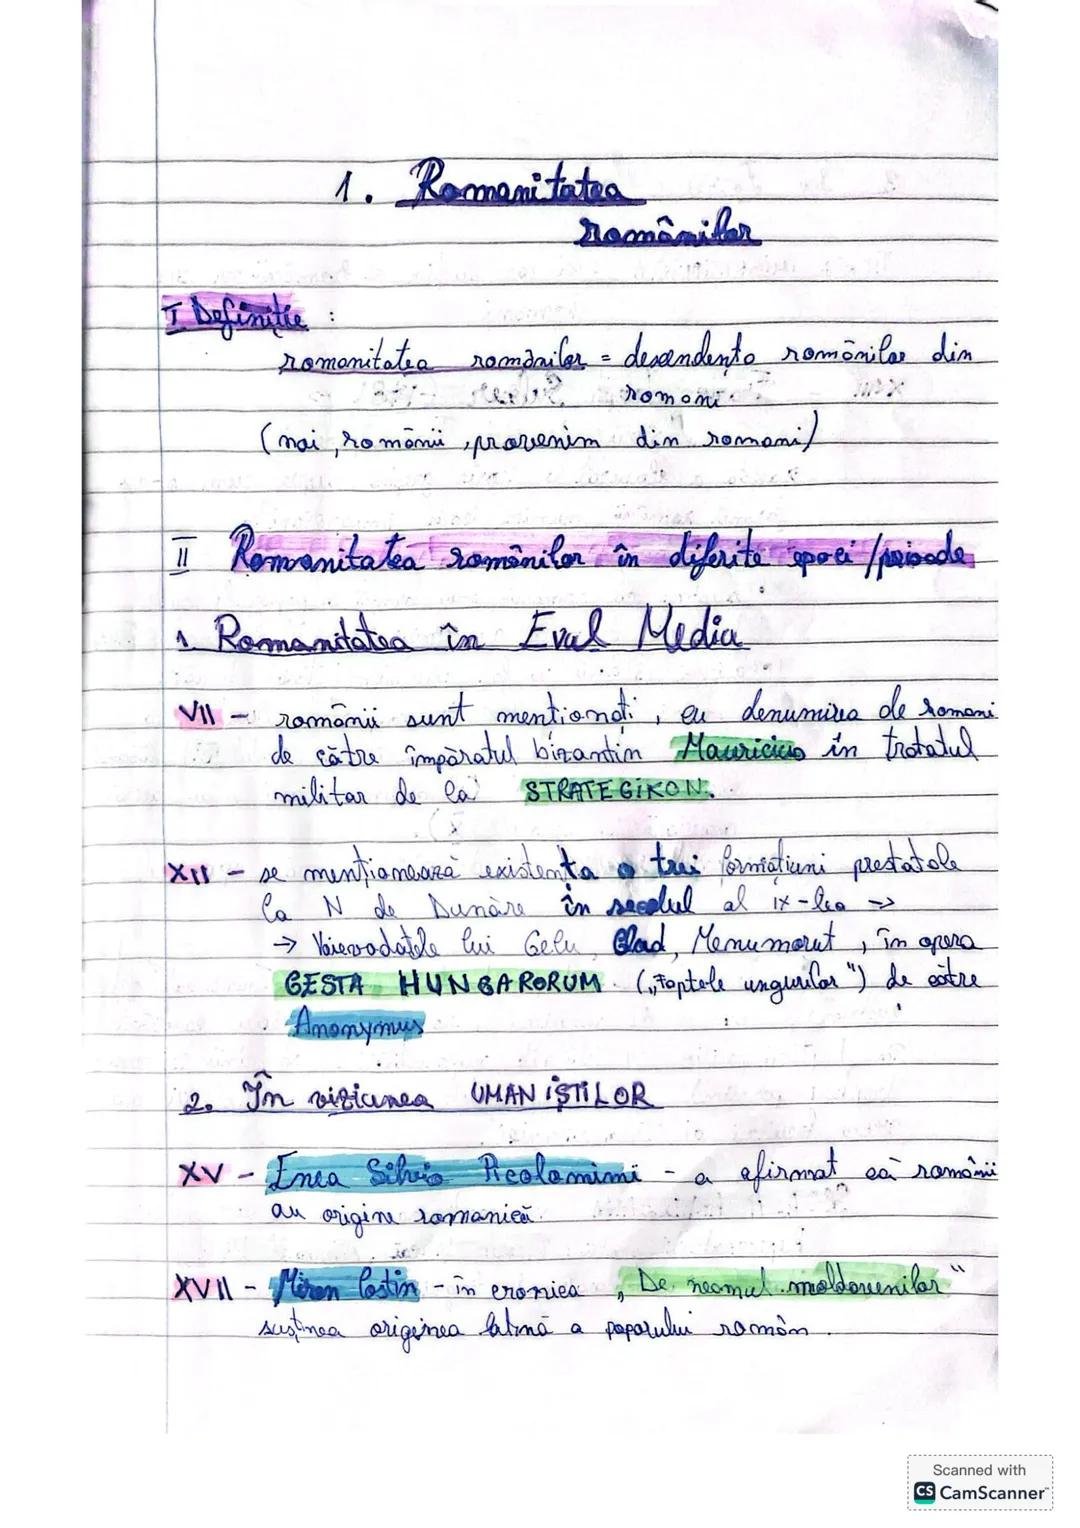 1. Romanitatea
românilor
I Definiție :
romanitatea românilor = descendența românilor din
romani
(noi, românii, provenim din romani)
II Romanitatea românilor în diferite epoci/perioade
1 Romanitatea în Evul Mediu
VII - românii sunt menționați, cu denumirea de romani
de către împăratul bizantin Mauricius în tratatul
militar de la STRATEGIKON.
XII - se menționează existența a trei formațiuni prestatale
la N de Dunăre în secolul al IX-lea →
→ Voievodatele lui Gelu, Glad, Menumorut, în opera
GESTA HUNGARORUM („Faptele ungurilor") de către
Anonymus
2. În viziunea UMANIȘTILOR
XV - Enea Silvio Picolomimi - a afirmat că românii
au origine romanică.
XVII - Miron Costin - în cronica „De neamul moldovenilor"
susținea originea latină a poporului român.
Scanned with
CS CamScanner